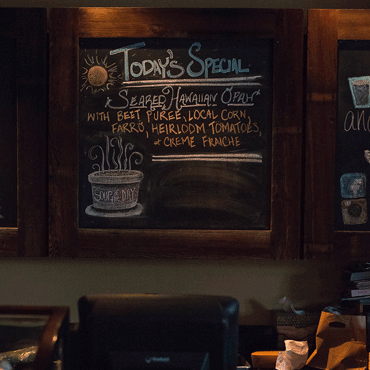 Today's Special
Seared Hawaiian Opah
with Beet Puree, Local Corn,
Farro, Heirloom Tomatoes,
& Creme Fraiche
Soup of the Day
an